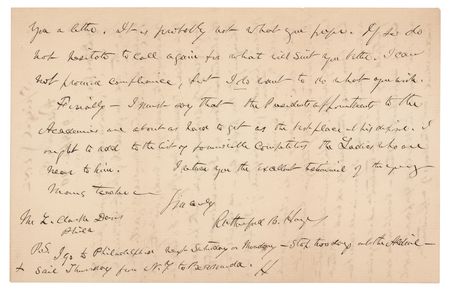 you a letter. It is probably not what you prefer. If so do
not hesitate to call again for what will suit you better. I can
not promise compliance, but I do want to do what you wish.
Finally — I must say that the Presidents appointments to the
Academies are about as hard to get as the best place at his disposal. I
ought to add to the list of formidable Competitors the Ladies who are
near to him. I return you the excellent testimonial of the young
Mans teacher —
Sincerely
Rutherford B. Hayes
Mr L. Clarke Davis
Phila
P.S. I go to Philadelphia next Saturday or Monday — Stop two days at the —
+ Sail Thursday from N.Y. to Bermuda. H